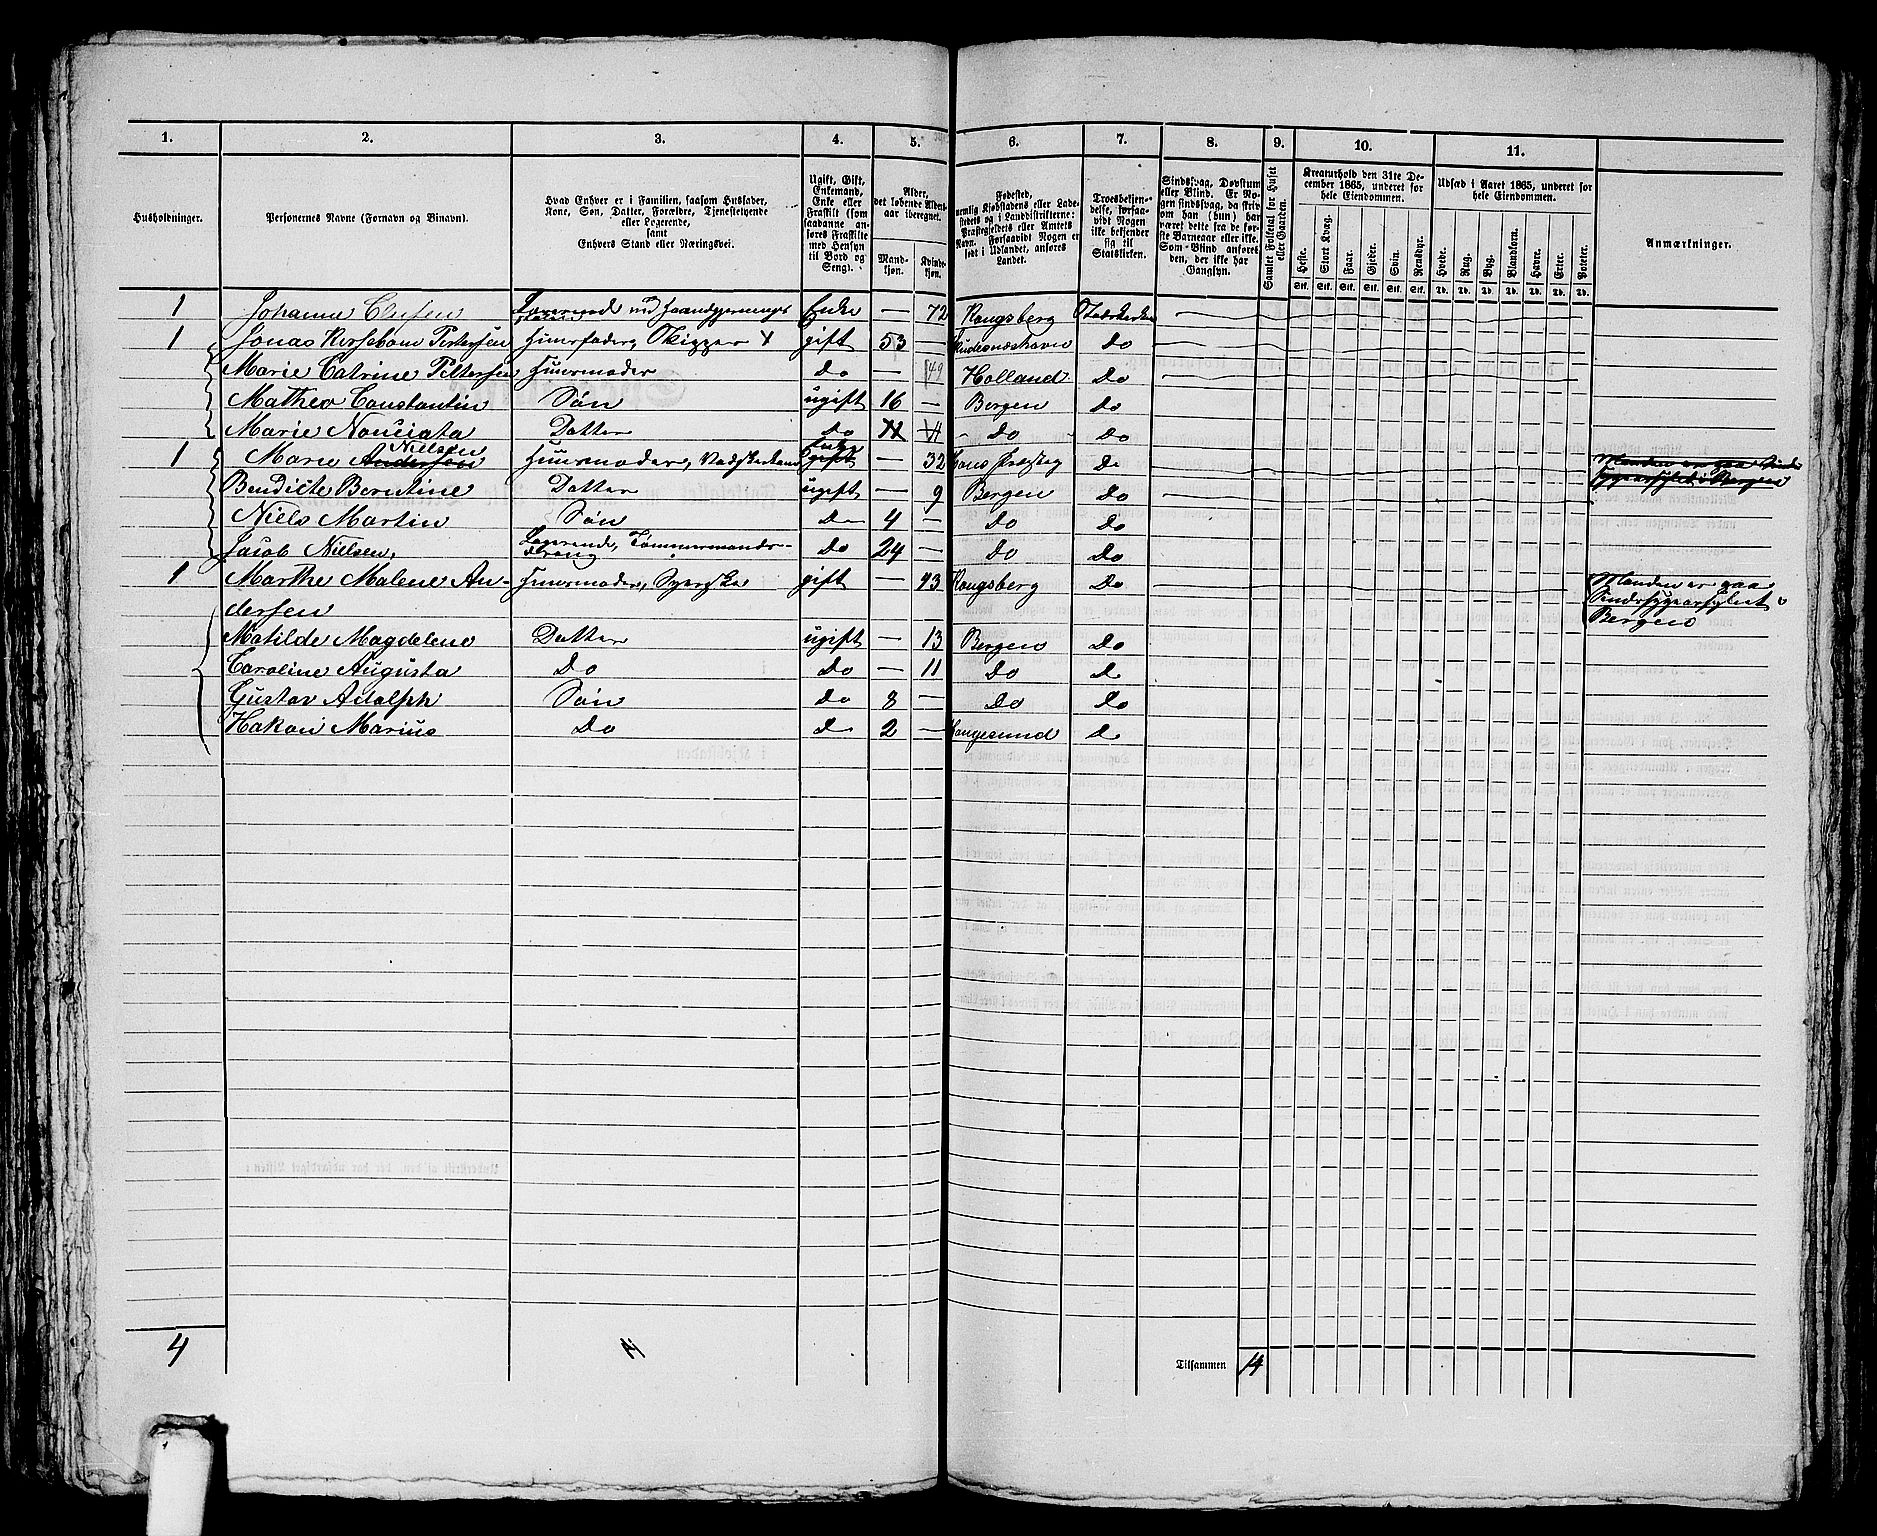 1. 2. 3. 4. 5. 6. 7. 8. 9. 10. 11.
Husholdninger.
Personernes Navne (Fornavn og Binavn).
Hvad Enhver er i Familien, saasom Husfader,
Kone, Søn, Datter, Forældre, Tjenestetyende
eller Logerende,
samt
Enhvers Stand eller Næringsvei.
Ugift, Gift,
Enkemand,
Enke eller
Fraskilt (som
saadanne an-
føres Fraskilte
med Hensyn
til Bord og
Seng).
Alder,
det løbende Alders-
aar iberegnet.
Mand-
kjøn.
Kvinde-
kjøn.
Fødested,
nemlig Kjøbstadens eller Lade-
stedets og i Landdistrikterne:
Præstegjeldets eller Amtets
Navn. Forsaavidt Nogen er
født i Udlandet, anføres
Landet.
Troesbekjen-
delse, forsaa-
vidt Nogen
ikke bekjender
sig til
Statskirken.
Sindssvag, Døvstum
eller Blind. Er No-
gen sindssvag, da skriv
om han (hun) har
været dette fra de før-
ste Barneaar eller ikke.
Som Blind anføres
den, der ikke har
Gangsyn.
Samlet Folketal for Huset
eller Gaarden.
Kreaturhold den 31te De-
cember 1865, underet for
hele Eiendommen.
Heste. Stort Kvæg. Faar. Gjeder. Svin. Rensdyr.
Stk. Stk. Stk. Stk. Stk. Stk.
Udsæd i Aaret 1865, underet for
hele Eiendommen.
Hvede. Rug. Byg. Blandkorn. Havre. Erter. Poteter.
Td. Td. Td. Td. Td. Td. Td.
Anmærkninger.
1 Johanne Olufsen Logerende ved Haandgjerninger Enke — 72 Kongsberg Statskirken
1 Jonas Pettersen Huusfader, Skipper gift 53 Skudesnæshavn Do
Marie Catrine Pettersen Huusmoder Do — 49 Holland Do
Matheo Constantin Søn ugift 16 — Bergen Do
Marie Nonciata Datter do 11 11 Do Do
1 Marie Andersen Nielsen Huusmoder, Vadskerkone gift Enke — 32 Do Manden er paa Sindssygeasylet i Bergen
Bendicte Berntine Datter ugift — 9 Bergen Do
Niels Martin Søn Do 4 — Do Do
Jacob Nielsen, Logerende, Tømmermands-
dreng Do 24 — Do Do
1 Marthe Malene An- Huusmoder, Syerske gift — 43 Kongsberg Do Manden er paa
dersen Sindssygeasylet i
Bergen
Matilde Magdelene Datter ugift — 13 Bergen Do
Caroline Augusta Do Do — 11 Do Do
Gustav Adolph Søn Do 8 — Do Do
Hakon Marius Do Do 2 — Haugesund Do
4
Tilsammen 14